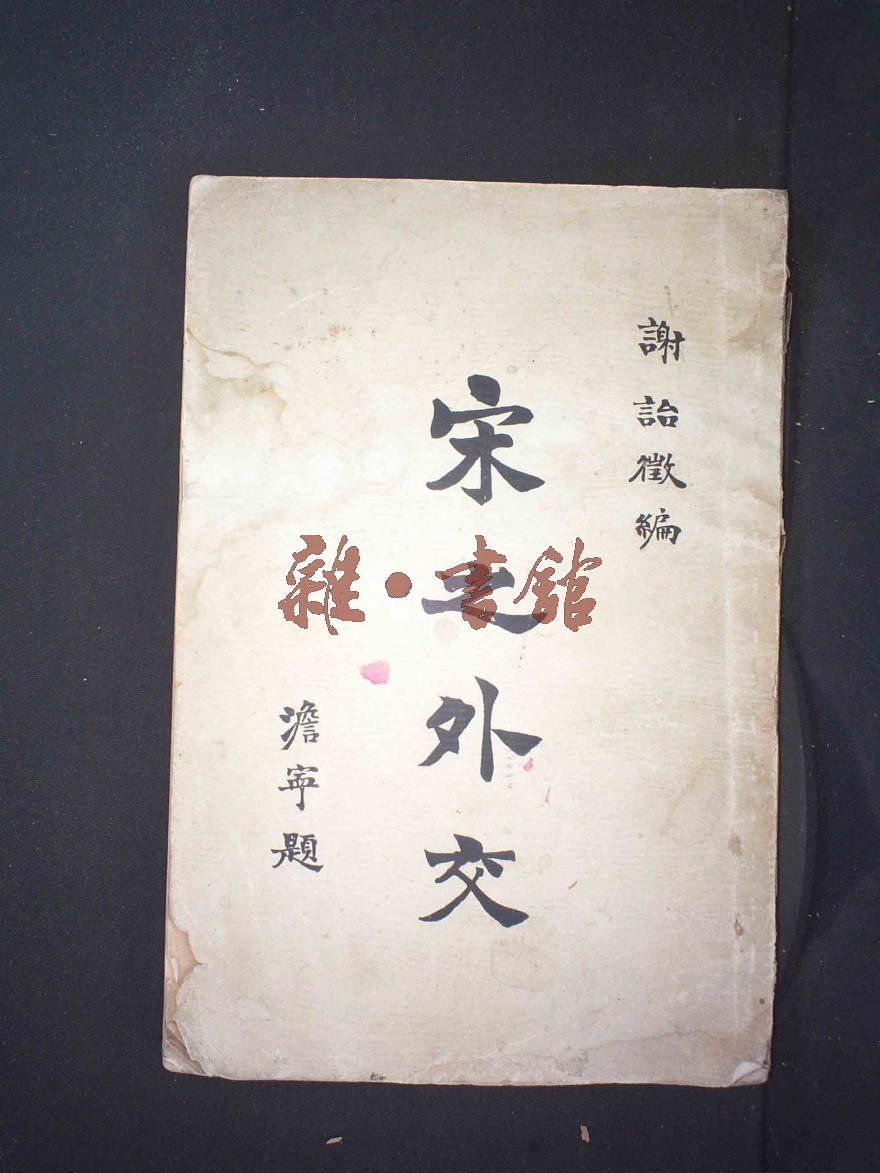 謝詒徵編
宋之外交
澹寧題
雜·書館